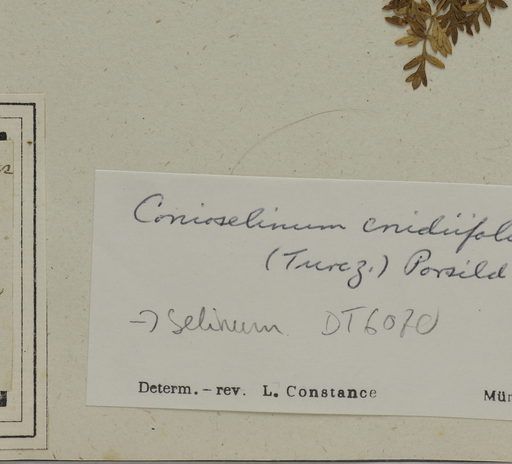 Conioselinum cnidiifol
(Turcz.) Porsild
→ Selinum DT6070
Determ. – rev. L. Constance Mün